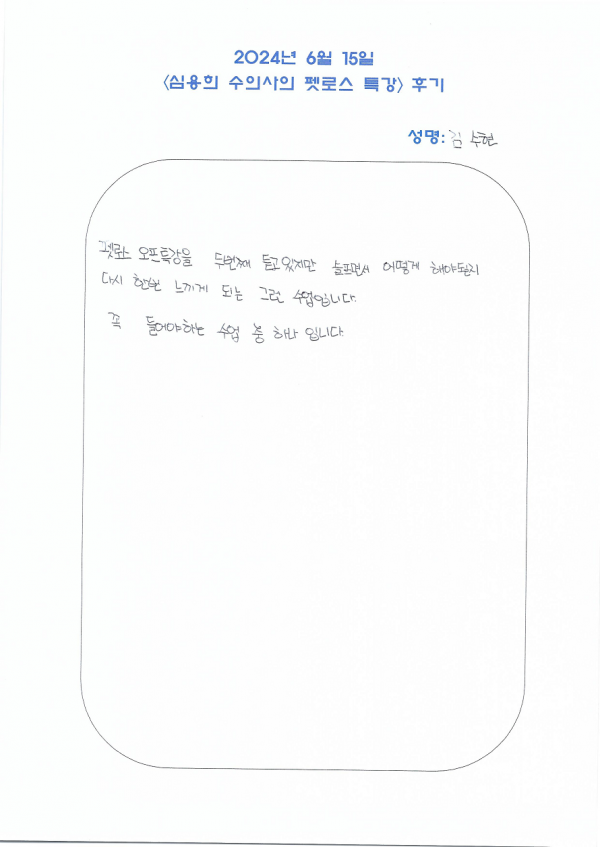 2024년 6월 15일
<심용희 수의사의 펫로스 특강> 후기
성명: 김수현
펫로스 오프특강을 두번째 듣고있지만 슬프면서 어떻게 해야될지
다시 한번 느끼게 되는 그런 수업입니다.
꼭 들어야하는 수업 중 하나 입니다.